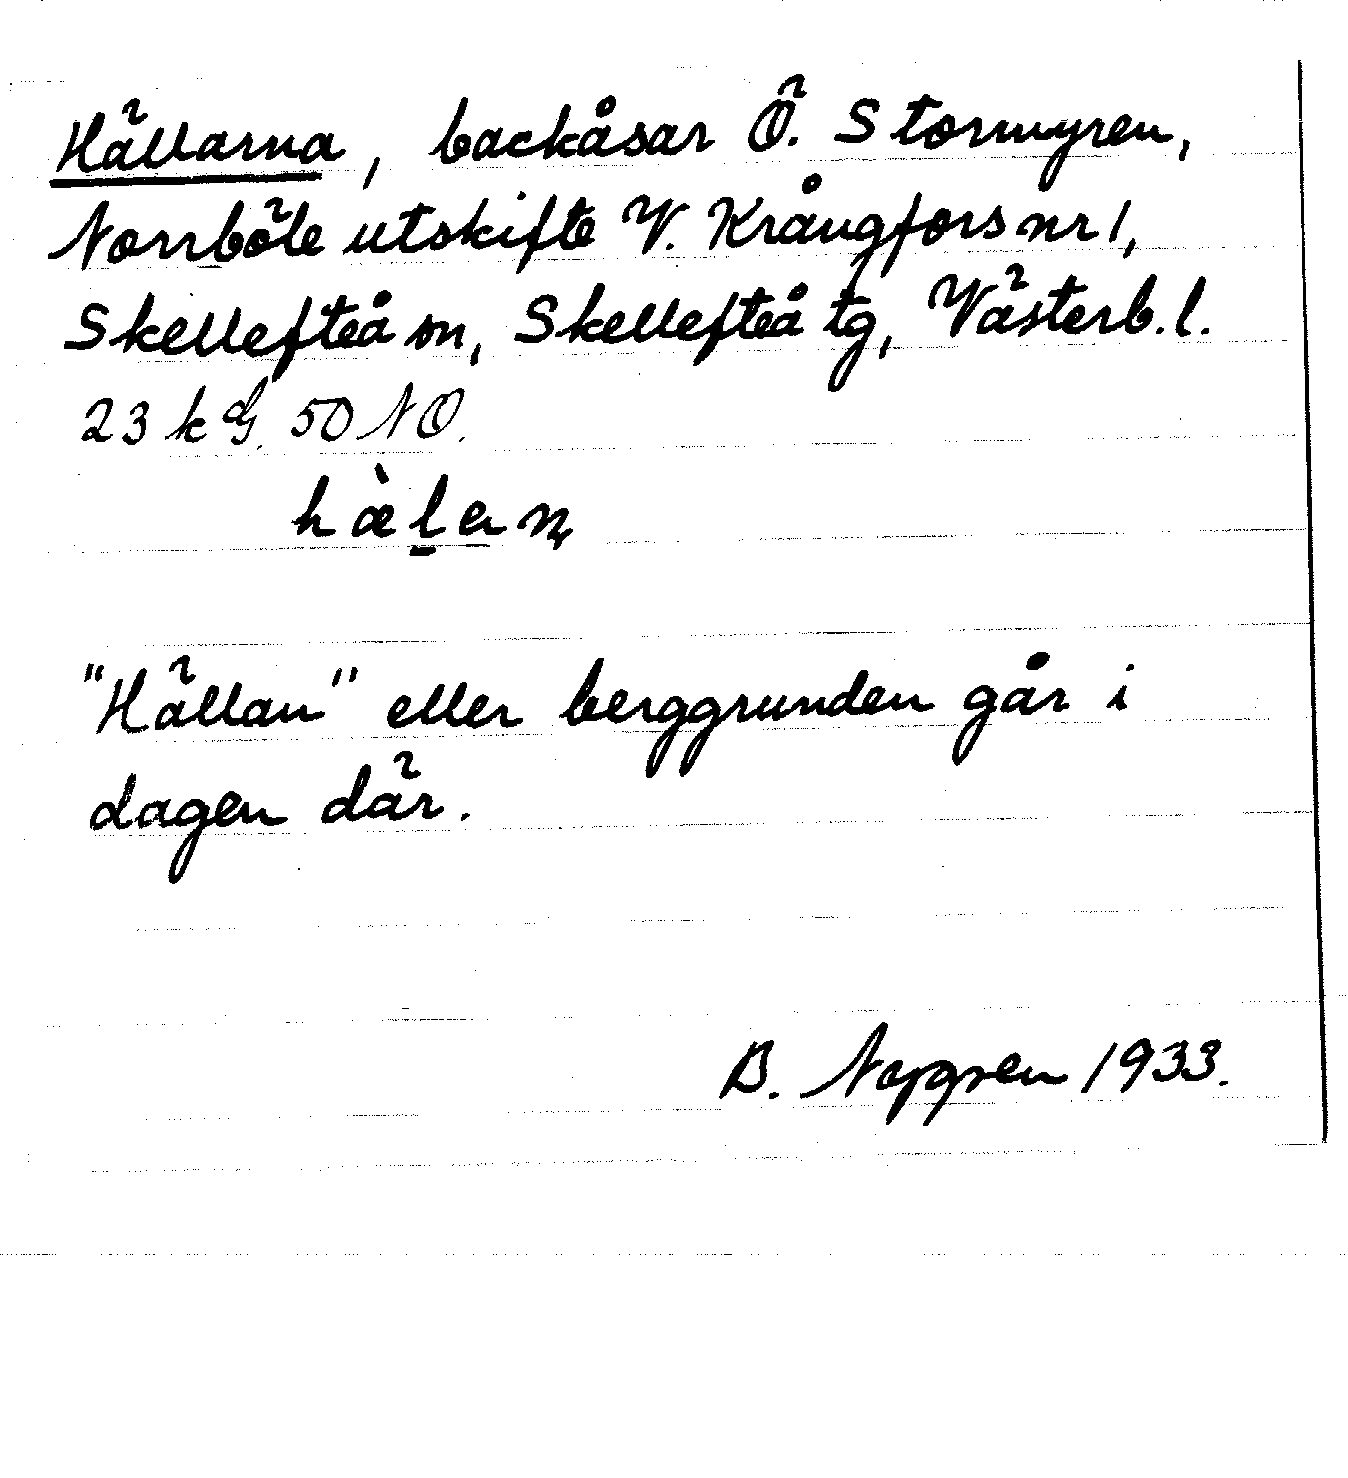 Hällarna, backåsar Ö. Stormyren,
Norrböle utskifte V. Krångfors nr 1,
Skellefteå sn, Skellefteå tg, Västerb. l.
23 k G. 50 NO.
hæ̀l̲an̨
"Hällan" eller berggrunden går i
dagen där.
B. 1933.